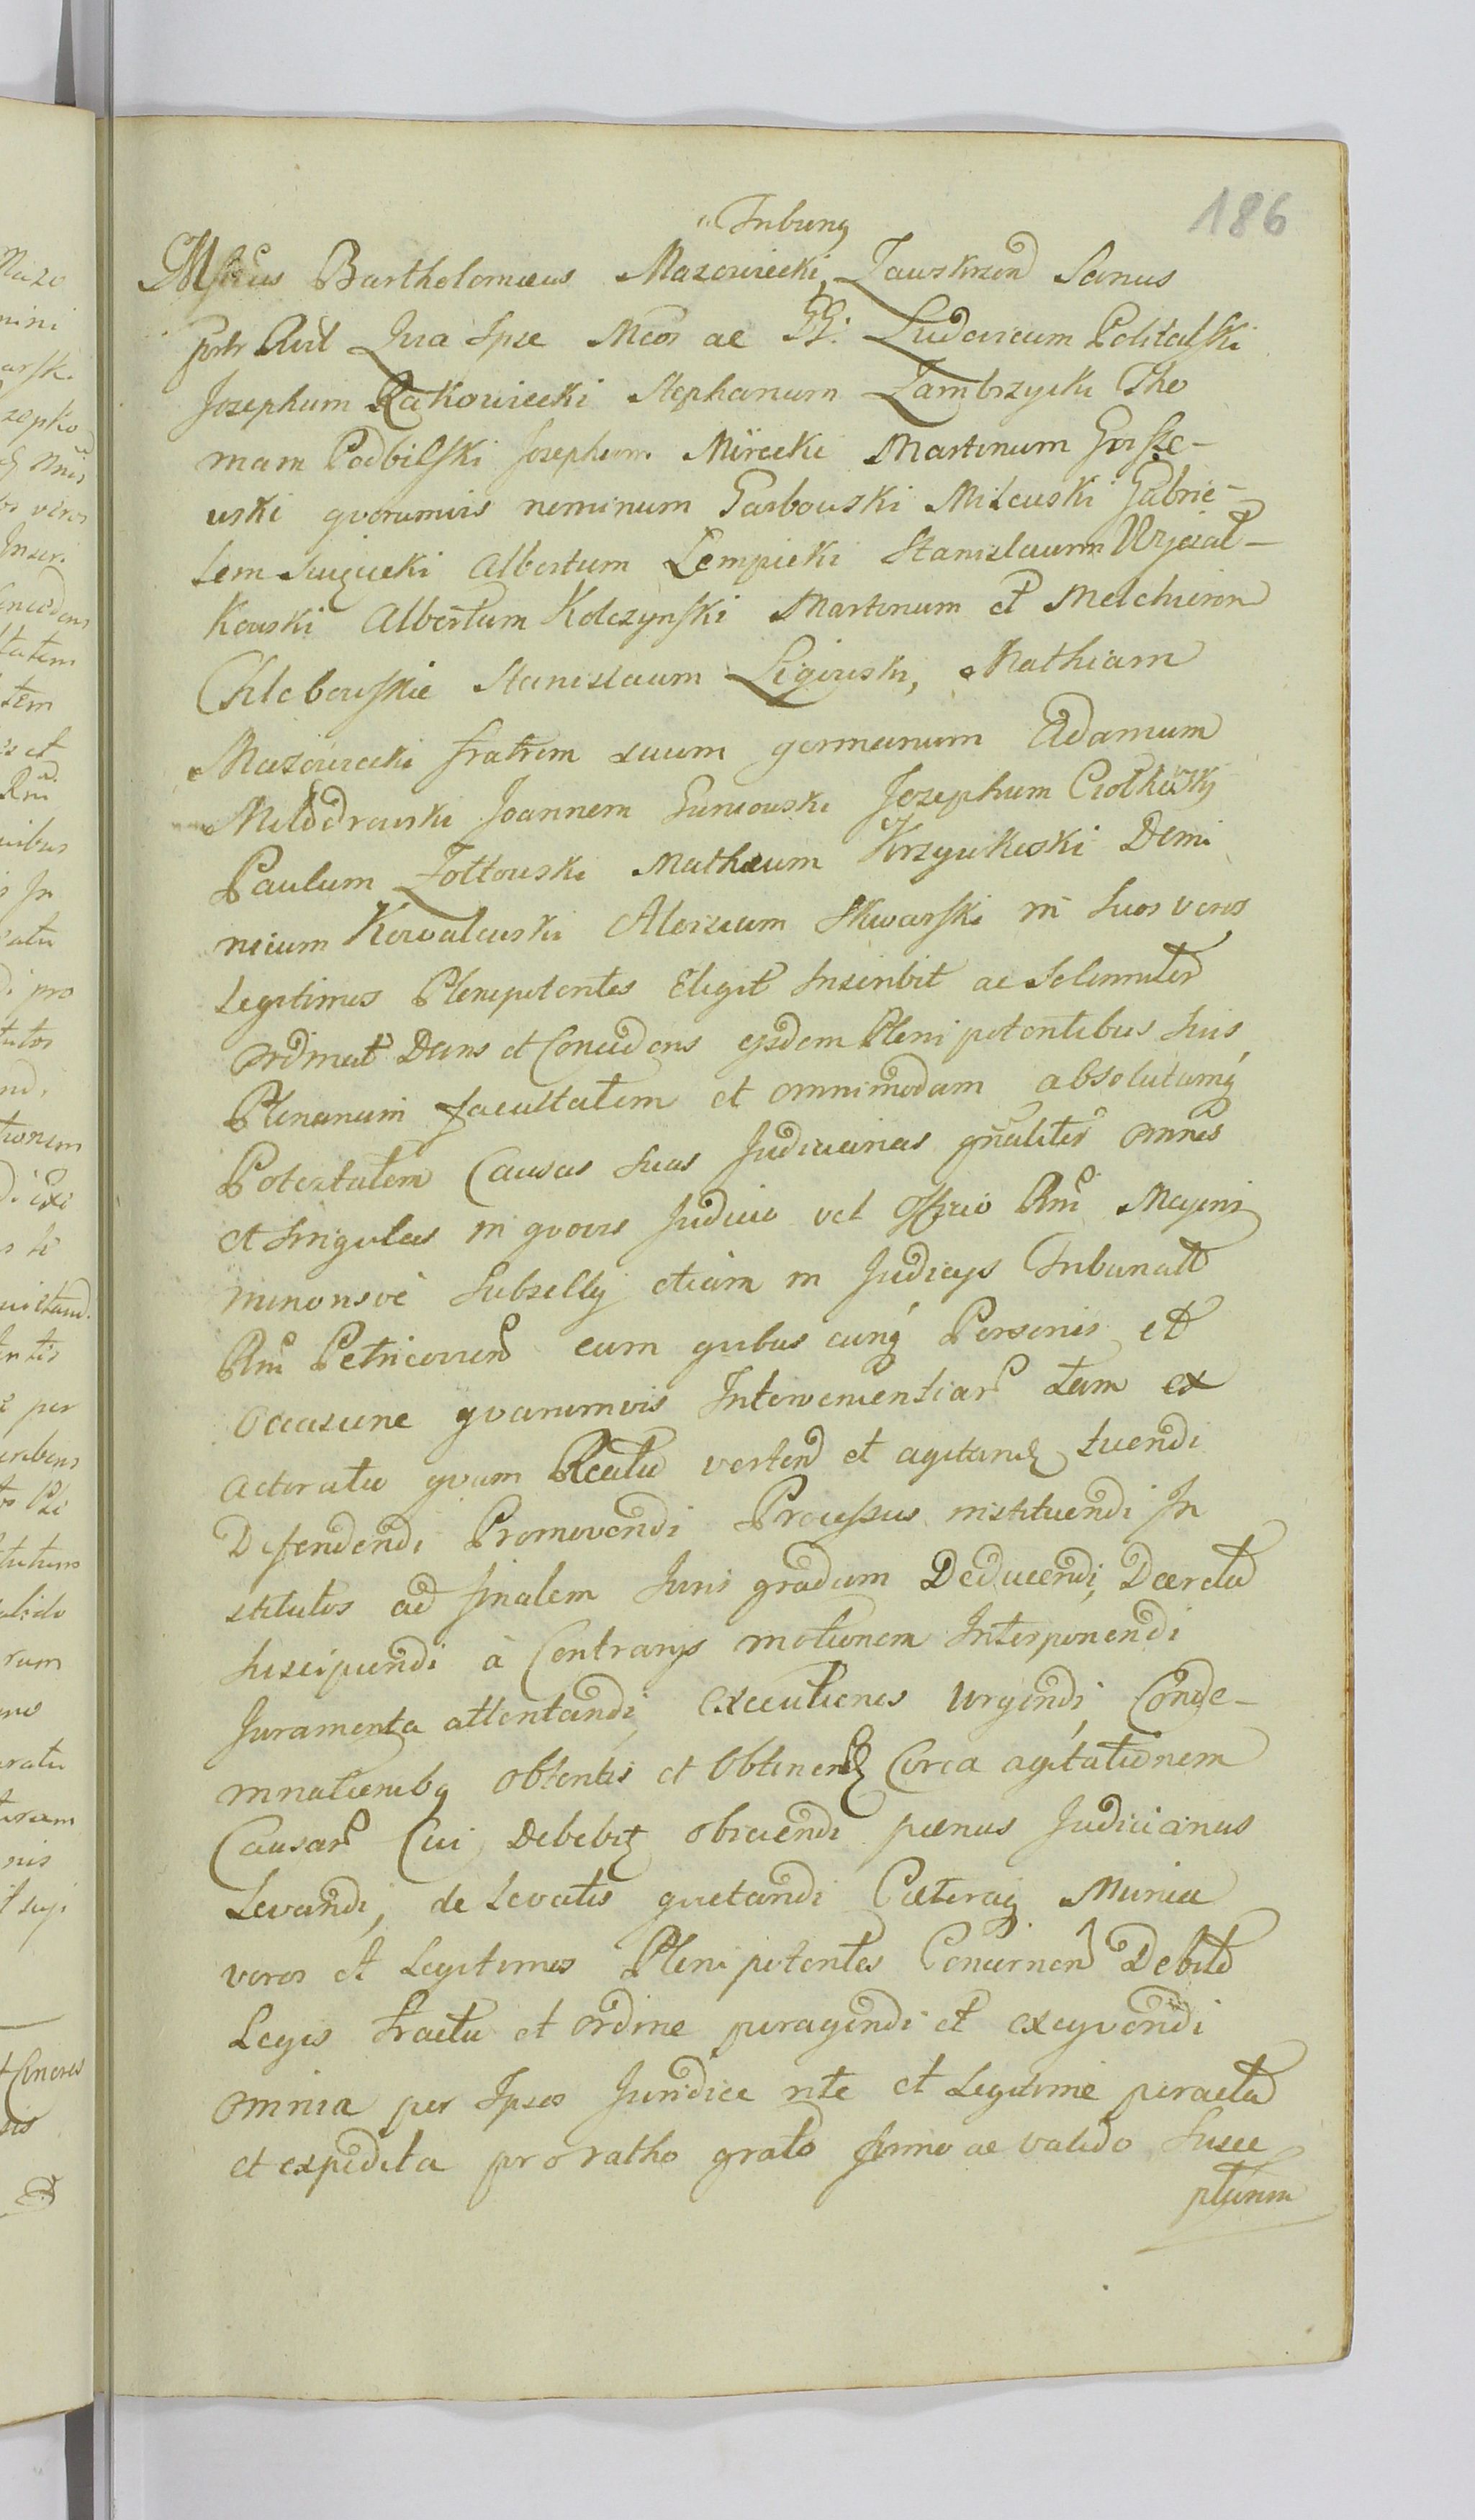 186
Tribung
Mfcus Bartholomæus Mazowiecki, Zawskrzen Sanus
Qua Ipse Mcos ac GG. Ludovicum Politalski
Josephum Rakowiecki Stephanum Zambrzycki Tho
mam Podbilski Josephum Mirecki Martinum Gorsze-
wski qvorumvis nominum Garbowski Milewski Gabrie-
lem Albertum Lempicki Stanislaum
kowski Albertum Kolczynski Martinum et Melchiorem
Chlebowskie Stanislaum Ligowski, Mathiam
Mazowiecki fratrem suum germanum Adamum
Milodrowski Joannem Guniowski Josephum Ciolkowski
Paulum Zottowski Mathæum Krzywkoski Domi
nicum Kowalewski Aloisium Skwarski in suos veros
Legitimos Plenipotentes Eligit Inscribit ac Solemniter
ordinat Dans et Concedens ejsdem Plenipotentibus suis
Plenariam facultatem et omnimodam absolutamq
Potestatem Causas suas Judiciarias gnaliter omnes
et singulas in qvovis Judicio vel Officio Rni Majoris
minorisve Subsellij etiam in Judicijs Tribunali
Rni Petricovien cum qvibus cunq Personis et
occasione qvarumvis Interveniẽntiar tam ex
actoratu qvam Reatu verten et agitand tuendi
Defendendi Promovendi Processus instituendi In
stitutos ad finalem Juris gradum Deducendi, Decreta
suscipiendi à Contrarijs motionem Interponendi
Juramenta attentandi executiones urgendi, Conde-
mnationibq obtentis et obtinend Circa agitationem
Causar Cui Debebit obiiciendi pœnas Judiciarias
Levandi, de Levatis quietandi Cæteraq Munia
veros et Legitimos Plenipotentes Concernen Debite
Legis tractu et ordine peragendi et exeqvendi
omnia per Ipsos Juridice rite et Legitime peracta
et expedita pro ratho grato firmo ac valido susce
pturum